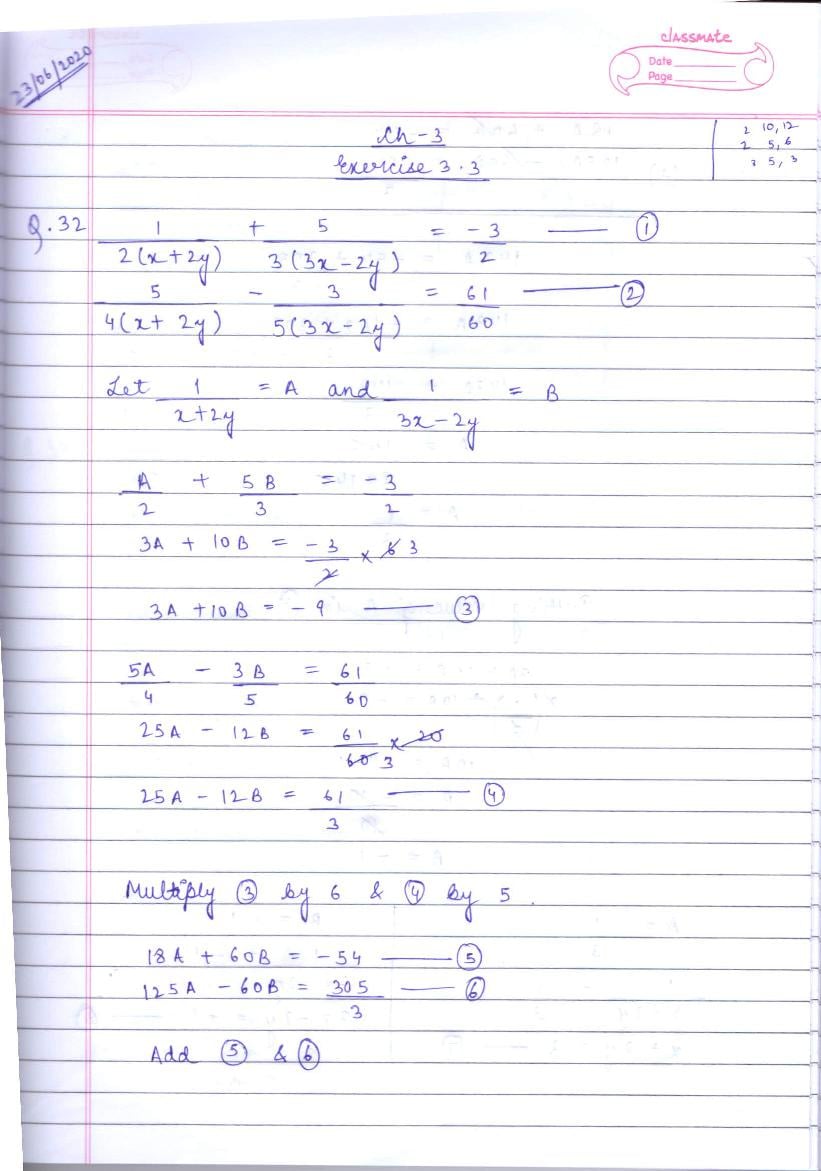 23/06/2020
classmate
Date
Page
2 10, 12
2 5, 6
3 5, 3
Ch - 3
Exercise 3.3
Q. 32 1/2(x+2y) + 5/3(3x-2y) = -3/2 ——— ①
5/4(x+2y) - 3/5(3x-2y) = 61/60 ——— ②
Let 1/x+2y = A and 1/3x-2y = B
A/2 + 5B/3 = -3/2
3A + 10B = -3/2 × 6 3
3A + 10B = -9 ——— ③
5A/4 - 3B/5 = 61/60
25A - 12B = 61/60 3 × 20
25A - 12B = 61/3 ——— ④
Multiply ③ by 6 & ④ by 5.
18A + 60B = -54 ——— ⑤
125A - 60B = 305/3 ——— ⑥
Add ⑤ & ⑥